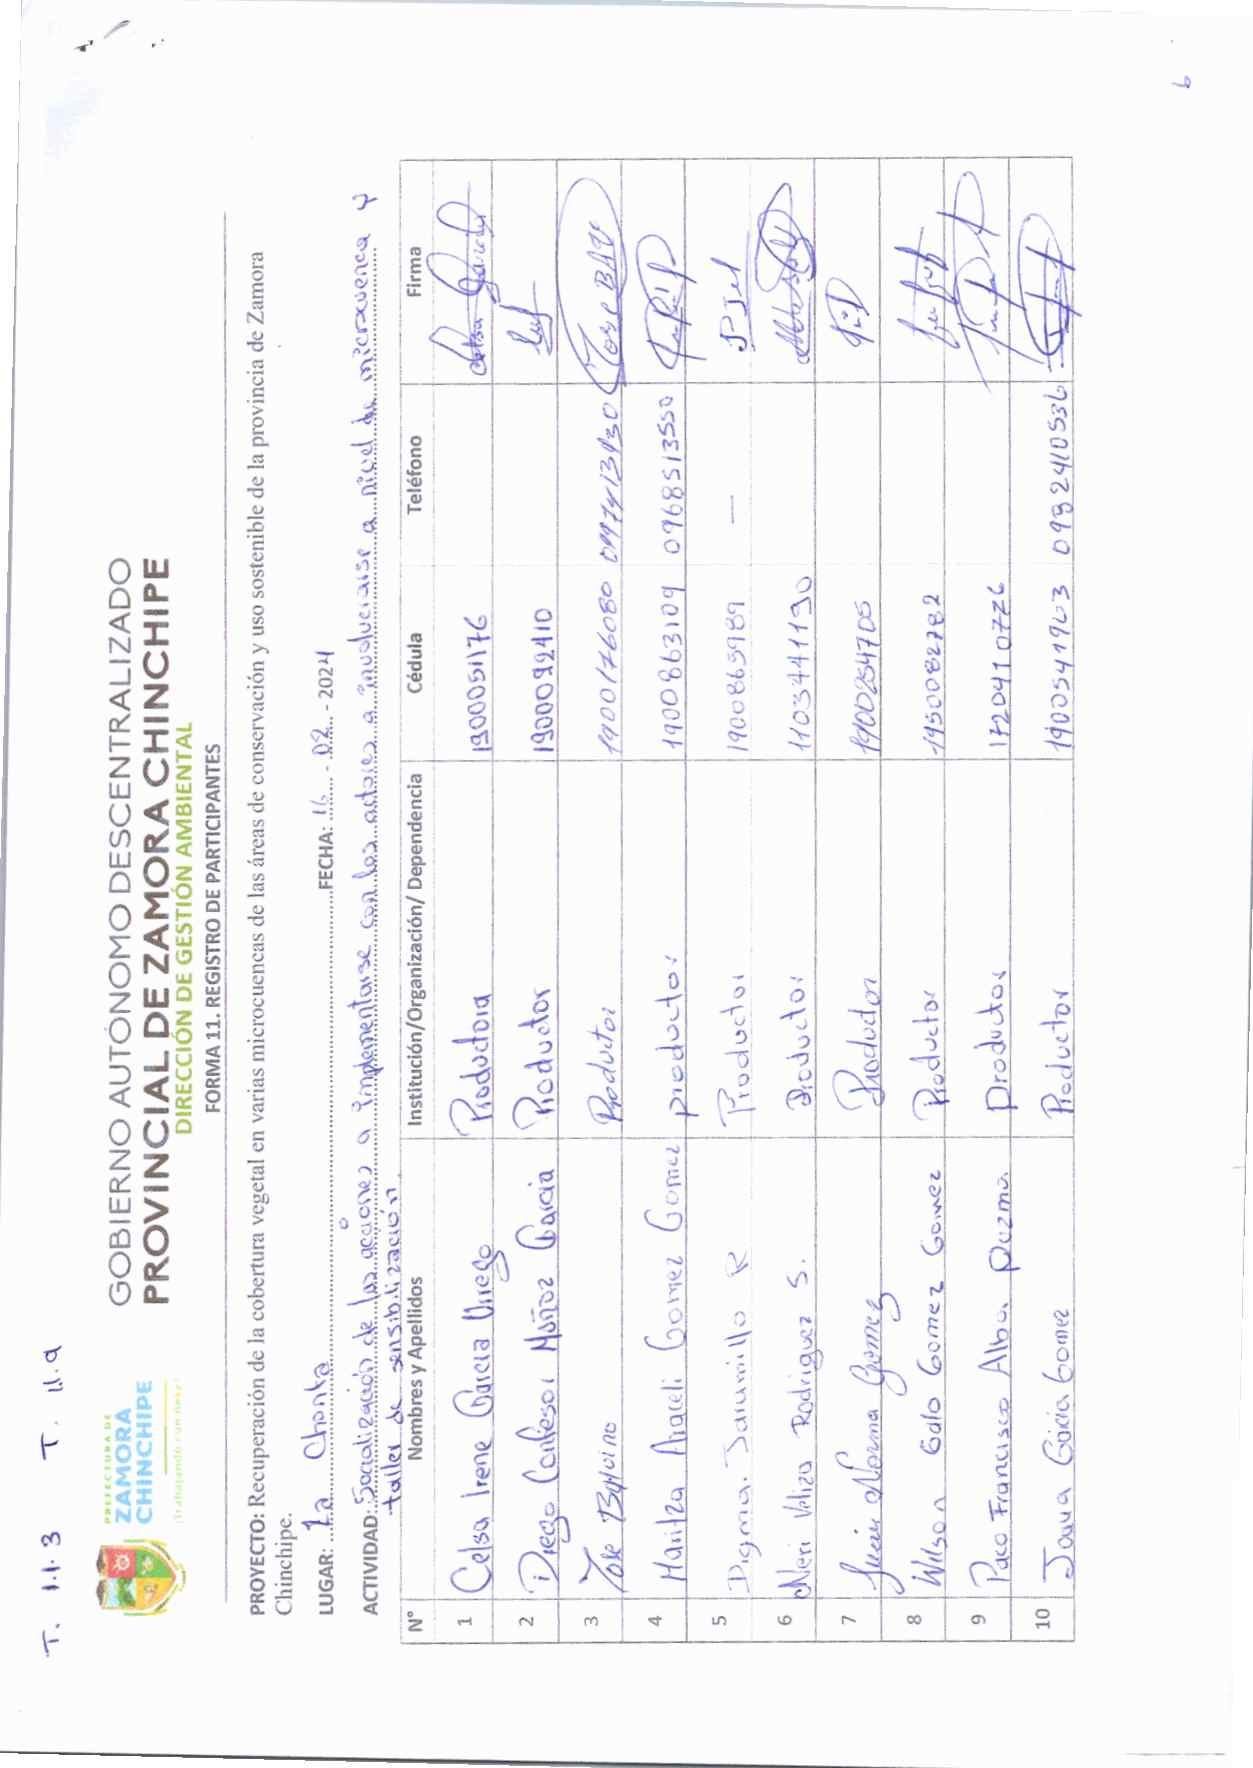 T. 1.1.3 T. 11.9
PREFECTURA DE
ZAMORA
CHINCHIPE
GOBIERNO AUTÓNOMO DESCENTRALIZADO
PROVINCIAL DE ZAMORA CHINCHIPE
DIRECCIÓN DE GESTIÓN AMBIENTAL
FORMA 11. REGISTRO DE PARTICIPANTES
PROYECTO: Recuperación de la cobertura vegetal en varias microcuencas de las áreas de conservación y uso sostenible de la provincia de Zamora
Chinchipe.
LUGAR: La Chonta FECHA: 16 - 02 - 2024
ACTIVIDAD: Socialización de las acciones a implementarse con los actores a involucrarse a nivel de microcuenca y
taller de sensibilización
N° Nombres y Apellidos Institución/Organización/ Dependencia Cédula Teléfono Firma
1 Celsa Irene Garcia Productora 1900051176
2 Diego Confesor Muñoz Garcia Productor 1900092410
3 Jose Productor 1900176080 Jose
4 Maritza Araceli Gomez Gomez productor 1900863109 0968513550
5 Digma Jaramillo R Productor 1900865989 —
6 Neri Rodriguez S. Productor 1103441190
7 Norma Gomez Productor 1900254705
8 Wilson Galo Gomez Gomez Productor 1950082782
9 Paco Francisco Alba Productor 1720410776
10 Garcia Gomez Productor 1900541903 0932410536
6